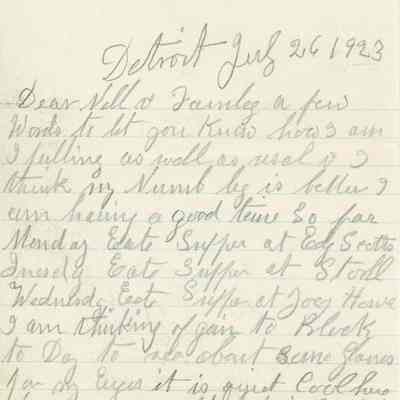 Detroit July 26 1923
Dear Nell & Famley a few
Words to let you Know how I am
I felling as well as usel & I
think my Numb leg is better I
am having a good time So far
Monday Eate Supper at Ed Scotts
Tuesdy Eate Supper at Stoll
Wednesdy Eate Supper at Joey Howe
I am thinking of gain to Block
to Day to see about some glases
for my Eyes it is quiet Cool here